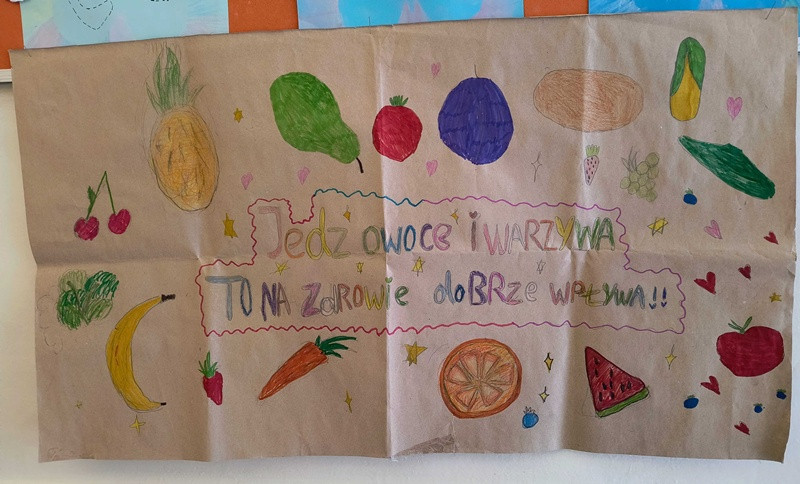 Jedz owoce i WARZYWA
TO NA ZdROWie doBRze WPŁYWA!!